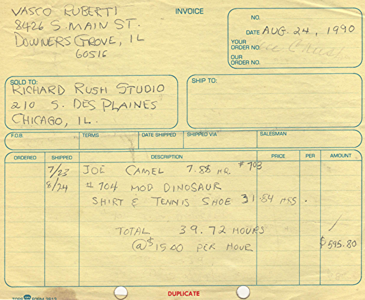 VASCO RUBERTI
INVOICE
8426 S. MAIN ST.
DOWNERS GROVE, IL
60516
NO.
DATE AUG. 24, 1990
YOUR ORDER NO.
OUR ORDER NO.
SOLD TO:
RICHARD RUSH STUDIO
210 S. DES PLAINES
CHICAGO, IL.
SHIP TO:
F.O.B. TERMS DATE SHIPPED SHIPPED VIA SALESMAN
ORDERED SHIPPED DESCRIPTION PRICE PER AMOUNT
7/23 JOE CAMEL 7.88 HR. #703
8/24 #704 MOD DINOSAUR
SHIRT & TENNIS SHOE 31.84 HRS.
TOTAL 39.72 HOURS
@ $15.00 PER HOUR $595.80
DUPLICATE